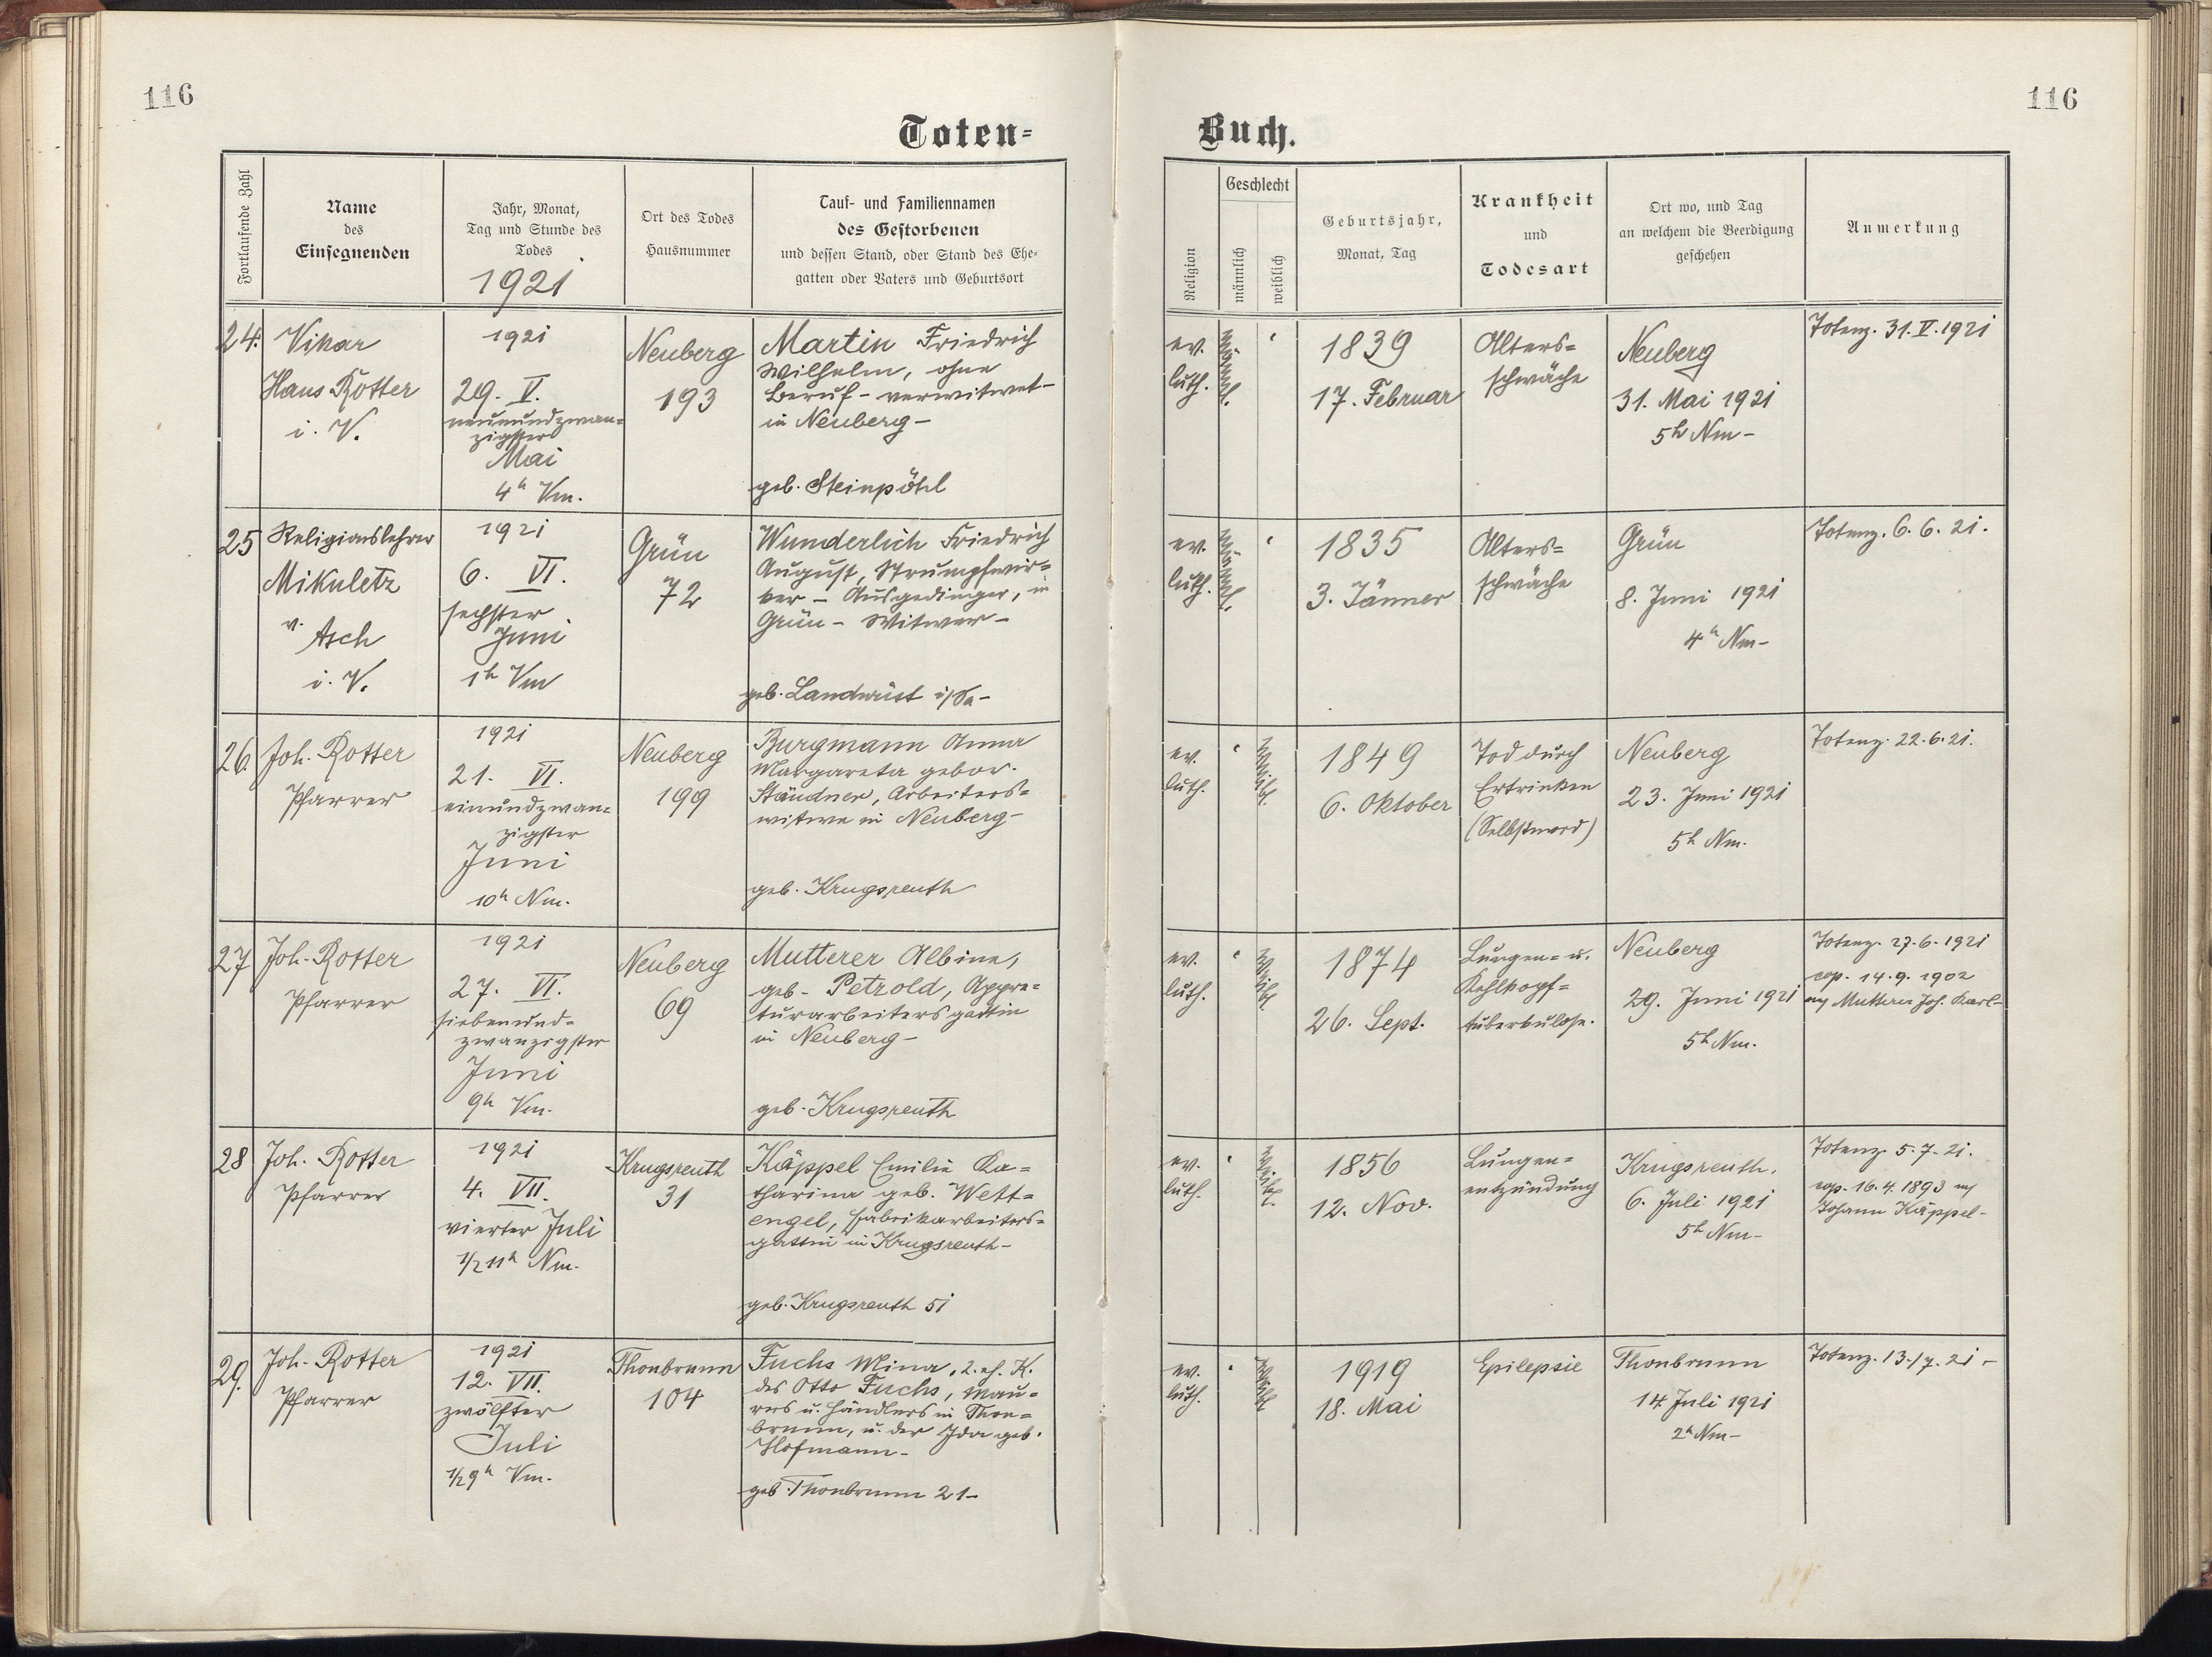 116
116
Toten-
Buch.
Fortlaufende Zahl
Name
des
Einsegnenden
Jahr, Monat,
Tag und Stunde des
Todes
1921
Ort des Todes
Hausnummer
Tauf- und Familiennamen
des Gestorbenen
und dessen Stand, oder Stand des Ehe-
gatten oder Vaters und Geburtsort
Religion
Geschlecht
männlich
weiblich
Geburtsjahr,
Monat, Tag
Krankheit
und
Todesart
Ort wo, und Tag
an welchem die Beerdigung
geschehen
Anmerkung
24.
Vikar
Hans Rotter
i. V.
1921
29. V.
neunundzwan-
zigster
Mai
4h Vm.
Neuberg
193
Martin Friedrich
Wilhelm, ohne
Beruf - verwitwet -
in Neuberg -
geb. Steinpöhl
ev.
luth.
männl.
1839
17. Februar
Alters-
schwäche
Neuberg
31. Mai 1921
5h Nm -
Totenz. 31. V. 1921
25
Religionslehrer
Mikuletz
v.
Asch
i. V.
1921
6. VI.
sechster
Juni
1h Vm
Grün
72
Wunderlich Friedrich
August, Strumpfwir-
ker - Ausgedinger, in
Grün - Witwer -
geb. Landwüst i/Sa -
ev.
luth.
männl.
1835
3. Jänner
Alters-
schwäche
Grün
8. Juni 1921
4h Nm -
Totenz. 6. 6. 21.
26.
Joh. Rotter
Pfarrer
1921
21. VI.
einundzwan-
zigster
Juni
10h Nm.
Neuberg
199
Burgmann Anna
Margareta gebor.
Ständner, Arbeiters-
witwe in Neuberg -
geb. Krugsreuth
ev.
luth.
weibl.
1849
6. Oktober
Tod durch
Ertrinken
(Selbstmord)
Neuberg
23. Juni 1921
5h Nm.
Totenz. 22. 6. 21.
27
Joh. Rotter
Pfarrer
1921
27. VI.
siebenund-
zwanzigster
Juni
9h Vm.
Neuberg
69
Mutterer Albine,
geb. Petzold, Appre-
turarbeitersgattin
in Neuberg -
geb. Krugsreuth
ev.
luth.
weibl.
1874
26. Sept.
Lungen- u.
Kehlkopf-
tuberkulose.
Neuberg
29. Juni 1921
5h Nm.
Totenz. 27. 6. 1921
cop. 14. 9. 1902
m/ Mutterer Joh. Karl -
28
Joh. Rotter
Pfarrer
1921
4. VII.
vierter Juli
1/2 11h Nm.
Krugsreuth
31
Käppel Emilie Ka-
tharina geb. Wett-
engel, Fabrikarbeiters-
gattin in Krugsreuth -
geb. Krugsreuth 51
ev.
luth.
weibl.
1856
12. Nov.
Lungen-
entzündung
Krugsreuth.
6. Juli 1921
5h Nm -
Totenz. 5. 7. 21.
cop. 16. 4. 1893 m/
Johann Käppel -
29.
Joh. Rotter
Pfarrer
1921
12. VII.
zwölfter
Juli
1/2 9h Vm.
Thonbrunn
104
Fuchs Mina, 2. eh. K.
des Otto Fuchs, Mau-
rers u. Händlers in Thon-
brunn, u. der Ida geb.
Hofmann -
geb. Thonbrunn 21 -
ev.
luth.
weibl.
1919
18. Mai
Epilepsie
Thonbrunn
14. Juli 1921
2h Nm -
Totenz. 13./7. 21 -